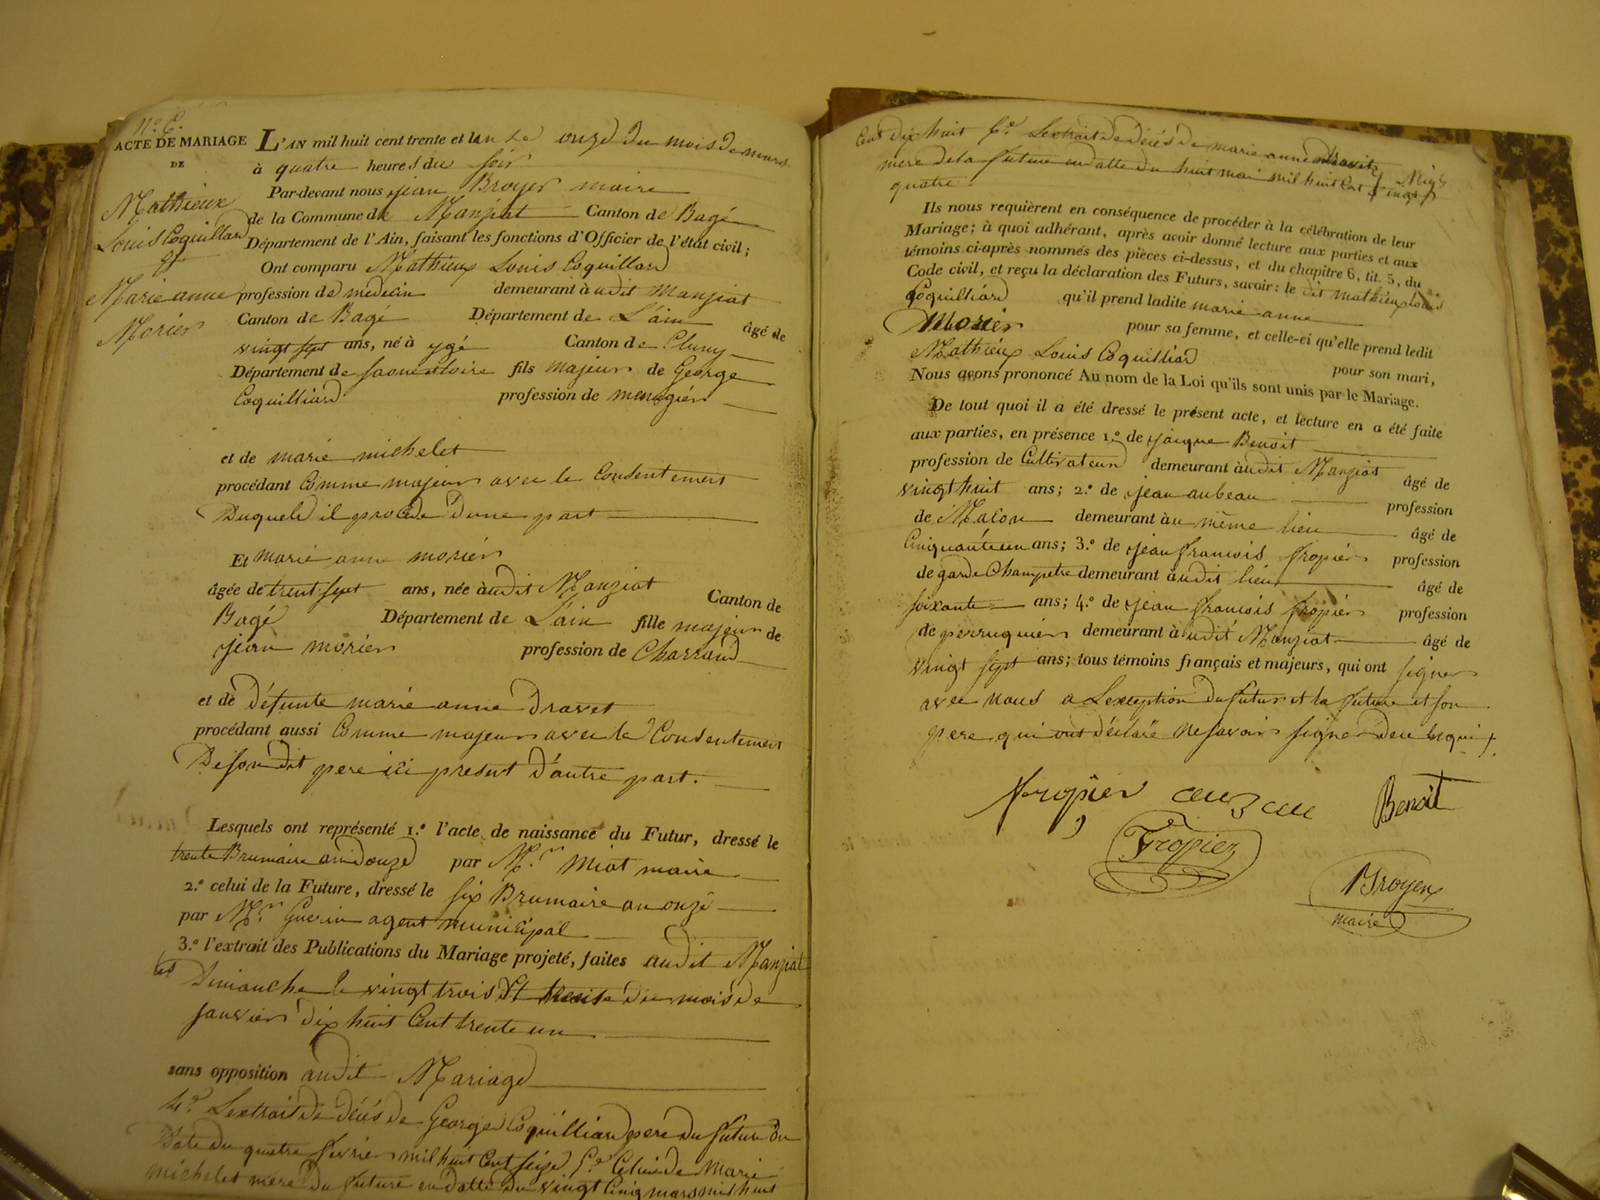 N.º 6.
ACTE DE MARIAGE
DE
Mathieux
Louis Coquilliard
et
Marie anne
Morier
L'AN mil huit cent trente et un le onze du mois de mars
à quatre heures du soir
Par-devant nous jean Broyer maire
de la Commune de Manziat Canton de Bagé
Département de l'Ain, faisant les fonctions d'Officier de l'état civil;
Ont comparu Mathieux Louis Coquilliard
profession de medecin demeurant à udit manziat
Canton de Bagé Département de L'ain âgé de
vingt sept ans, né à ygé Canton de Cluny
Département de saone et loire fils majeur de George
Coquilliard profession de menagier
et de marie michelet
procédant comme majeur avec le Consentement
Duquels il procède D'une part
Et marie anne morier
âgée de trent sept ans, née à udit Manziat Canton de
Bagé Département de L'ain fille majeur de
jean morier profession de Charrand
et de Défunte marie anne Dravet
procédant aussi Comme majeur avec le Consentement
De son dit pere ici present D'autre part.
Lesquels ont représenté 1.º l'acte de naissance du Futur, dressé le
trente Brumaire an douze par M.r Miat maire
2.º celui de la Future, dressé le six Brumaire an onze
par M.r Guerin agent municipal
3.º l'extrait des Publications du Mariage projeté, faites audit Manziat
les Dimanche le vingt trois et trente du mois de
janvier dix huit Cent trente un
sans opposition audit Mariage
4.º Lextrait de décés de George Coquilliard pere du futur en
Date du quatre fevrier mil huit Cent seize 5.º Celui de Marie
michelet mere Du futur en datte Du vingt Cinq mars mil huit
Cent dix huit 6.º Lextrait de décés de marie anne Dravet
mere de la future en datte du huit mai mil huit Cent vingt
quatre.
Ils nous requièrent en conséquence de procéder à la célébration de leur
Mariage; à quoi adhérant, après avoir donné lecture aux parties et aux
témoins ci-après nommés des pièces ci-dessus, et du chapitre 6, tit. 5, du
Code civil, et reçu la déclaration des Futurs, savoir: le dit mathieux Louis
Coquilliard qu'il prend ladite marie anne
Morier pour sa femme, et celle-ci qu'elle prend ledit
Mathieux Louis Coquilliard pour son mari,
Nous avons prononcé Au nom de la Loi qu'ils sont unis par le Mariage.
De tout quoi il a été dressé le présent acte, et lecture en a été faite
aux parties, en présence 1.º de jacque Benoit
profession de Cultivateur demeurant à udit Manziat âgé de
vingt huit ans; 2.º de jean aubeau profession
de Maçon demeurant à u même lieu âgé de
Cinquante un ans; 3.º de jean francois fropier profession
de garde Champetre demeurant à udit lieu âgé de
soixante ans; 4.º de jean francois fropier profession
de perruquier demeurant à udit Manziat âgé de
vingt sept ans; tous témoins français et majeurs, qui ont signer
avec nous a Lexception Du futur et la future et son
pere qui ont déclaré ne savoir signer de ce requi
fropier Benoit
Fropier
Broyer
maire